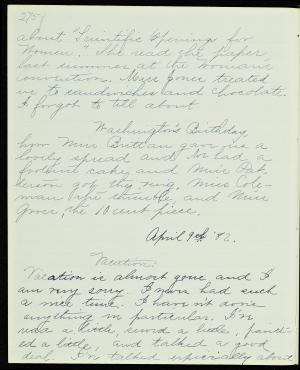 275
about "Scientific Openings for
Women." She read the paper
last summer at the Woman's
convention. Miss Grace treated
us to sandwiches and chocolate.
I forgot to tell about
Washington's Birthday
how Miss Brittan gave us a
lovely spread and had a
fortune cake, and Miss
got the ring, Miss Cole-
man the thimble, and Miss
Grace, the 10 cent piece.
April 9th, '92.
Vacation.
Vacation is almost gone and I
am very sorry. I never had such
a nice time. I haven't done
anything in particular. I've
read a little, sewed a little, paint-
ed a little, and talked a good
deal. I've talked especially about